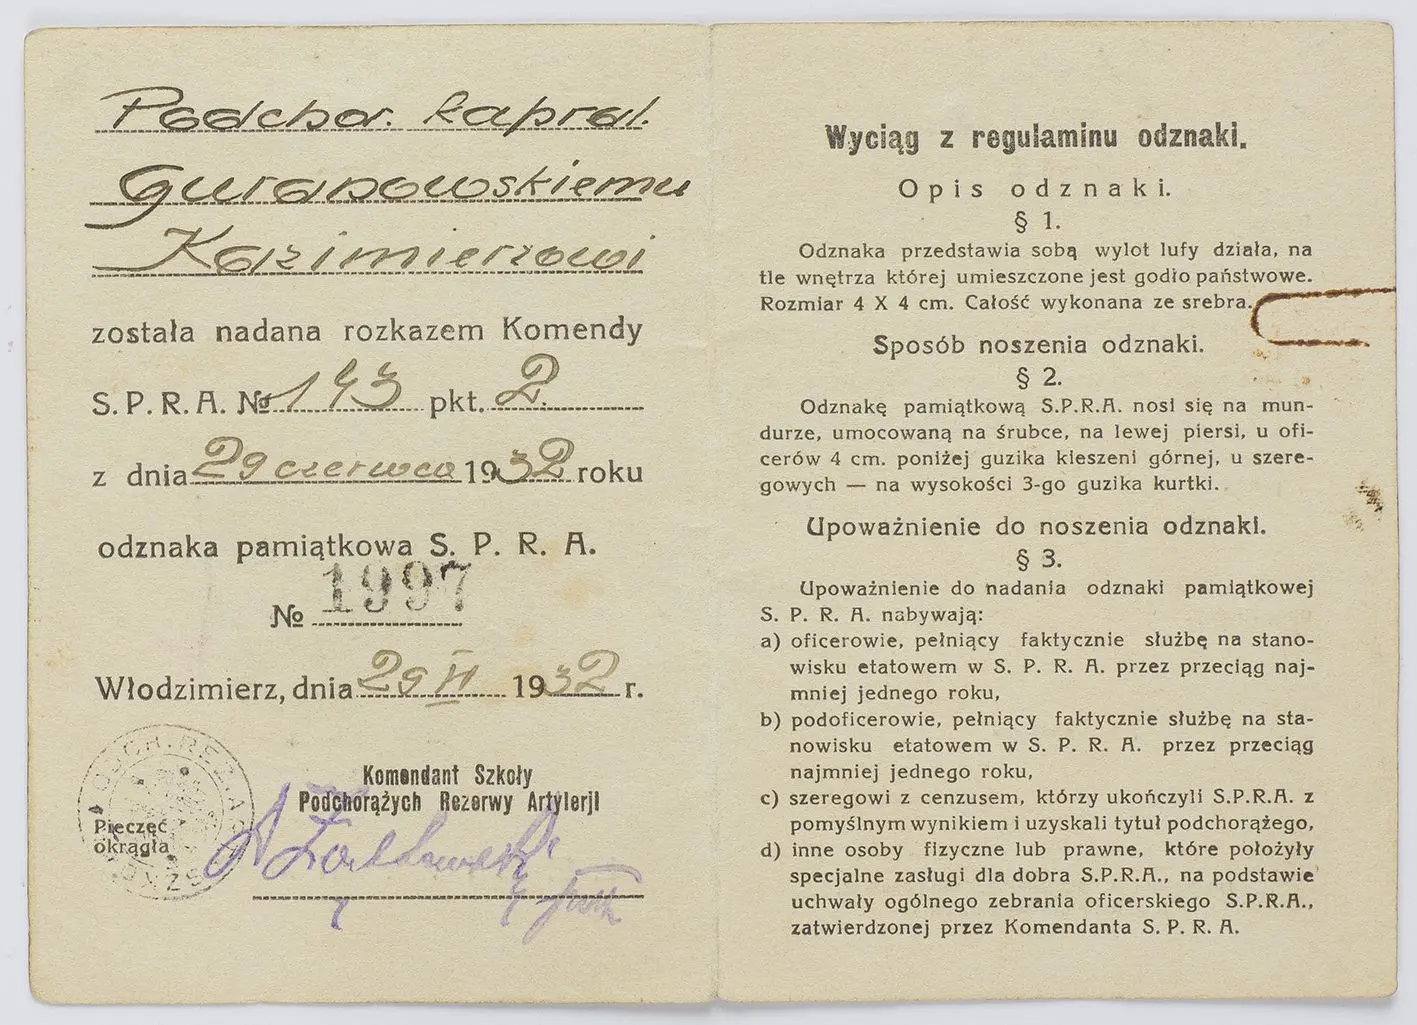 Podchor. kapral.
Guranowskiemu
Kazimierzowi
została nadana rozkazem Komendy
S. P. R. A. № 143 pkt. 2.
z dnia 29 czerwca 1932 roku
odznaka pamiątkowa S. P. R. A.
№ 1997
Włodzimierz, dnia 29 VI 1932 r.
Komendant Szkoły
Podchorążych Rezerwy Artylerji
Pieczęć
okrągła
Wyciąg z regulaminu odznaki.
Opis odznaki.
§ 1.
Odznaka przedstawia sobą wylot lufy działa, na
tle wnętrza której umieszczone jest godło państwowe.
Rozmiar 4 X 4 cm. Całość wykonana ze srebra.
Sposób noszenia odznaki.
§ 2.
Odznakę pamiątkową S.P.R.A. nosi się na mun-
durze, umocowaną na śrubce, na lewej piersi, u ofi-
cerów 4 cm. poniżej guzika kieszeni górnej, u szere-
gowych — na wysokości 3-go guzika kurtki.
Upoważnienie do noszenia odznaki.
§ 3.
Upoważnienie do nadania odznaki pamiątkowej
S. P. R. A. nabywają:
a) oficerowie, pełniący faktycznie służbę na stano-
wisku etatowem w S. P. R. A. przez przeciąg naj-
mniej jednego roku,
b) podoficerowie, pełniący faktycznie służbę na sta-
nowisku etatowem w S. P. R. A. przez przeciąg
najmniej jednego roku,
c) szeregowi z cenzusem, którzy ukończyli S.P.R.A. z
pomyślnym wynikiem i uzyskali tytuł podchorążego,
d) inne osoby fizyczne lub prawne, które położyły
specjalne zasługi dla dobra S.P.R.A., na podstawie
uchwały ogólnego zebrania oficerskiego S.P.R.A.,
zatwierdzonej przez Komendanta S. P. R. A.